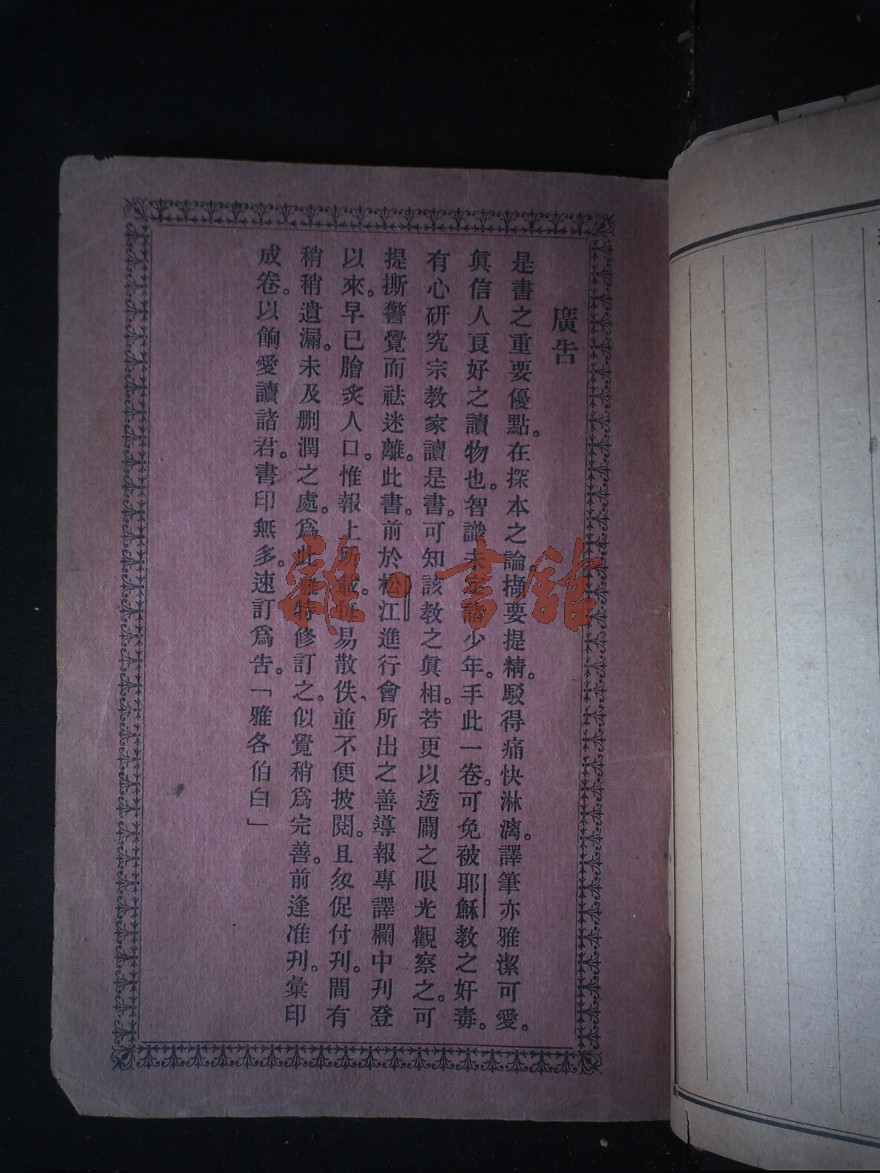 廣告
是書之重要優點。在探本之論。擷要提精。駁得痛快淋漓。譯筆亦雅潔可愛。
眞信人良好之讀物也。智識未定諸少年。手此一卷。可免被耶穌教之奸毒。
有心硏究宗教家讀是書。可知該教之眞相。若更以透闢之眼光觀察之。可
提撕警覺而祛迷離。此書。前於松江進行會所出之善導報專譯欄中刊登
以來。早已膾炙人口。惟報上所載。易散佚、並不便披閱。且匆促付刊。間有
稍稍遺漏。未及刪潤之處。爲此。特修訂之。似覺稍爲完善。前逢准刊。彙印
成卷。以餉愛讀諸君。書印無多。速訂爲吿。「雅各伯白」
雜·書館